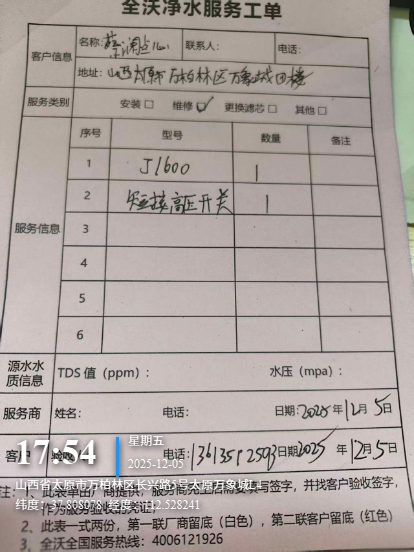 全沃净水服务工单
客户信息 名称: 点心 联系人: 电话:
地址: 山西太原万柏林区万象城四楼
服务类别 安装□ 维修☑ 更换滤芯□ 其他□
服务信息 序号 型号 数量 备注
1 J1600 1
2 短接高压开关 1
3
4
5
6
源水水质信息 TDS 值（ppm）: 水压（mpa）:
服务商 姓名: 电话: 日期: 2025年12月5日
客户 验收 13613512593 日期 2025年12.5日
17:54 星期五
2025-12-05
山西省太原市万柏林区长兴路5号太原万象城L4
纬度: 37.808078, 经度: 112.528241
1、此表单由厂商提供，服务商完工后需要填写签字，并找客户验收签字，
作为服务验收凭证
2、此表一式两份，第一联厂商留底（白色），第二联客户留底（红色）
3、全沃全国服务热线：4006121926